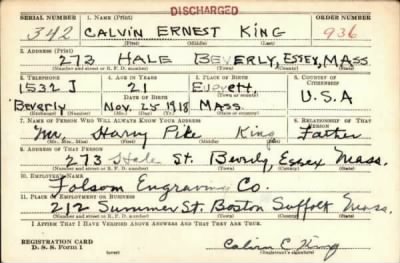 DISCHARGED
SERIAL NUMBER 1. NAME (Print) ORDER NUMBER
342 CALVIN ERNEST KING 936
(First) (Middle) (Last)
3. ADDRESS (Print)
273 HALE BEVERLY, ESSEX, MASS.
(Number and street or R. F. D. number) (Town) (County) (State)
3. TELEPHONE 4. AGE IN YEARS 5. PLACE OF BIRTH 6. COUNTRY OF CITIZENSHIP
1532 J 21 Everett
DATE OF BIRTH (Town or county) U.S.A
Beverly Nov. 25 1918 Mass.
(Exchange) (Mo.) (Day) (Yr.) (State or country)
7. NAME OF PERSON WHO WILL ALWAYS KNOW YOUR ADDRESS 8. RELATIONSHIP OF THAT PERSON
Mr. Harry Pike King Father
(Mr., Mrs., Miss) (First) (Middle) (Last)
9. ADDRESS OF THAT PERSON
273 Hale St. Beverly, Essex Mass.
(Number and street or R. F. D. number) (Town) (County) (State)
10. EMPLOYER'S NAME
Folsom Engraving Co.
11. PLACE OF EMPLOYMENT OR BUSINESS
212 Summer St. Boston Suffolk Mass.
(Number and street or R. F. D. number) (Town) (County) (State)
I AFFIRM THAT I HAVE VERIFIED ABOVE ANSWERS AND THAT THEY ARE TRUE.
REGISTRATION CARD
D. S. S. Form 1 Calvin E. King
(Registrant's signature)